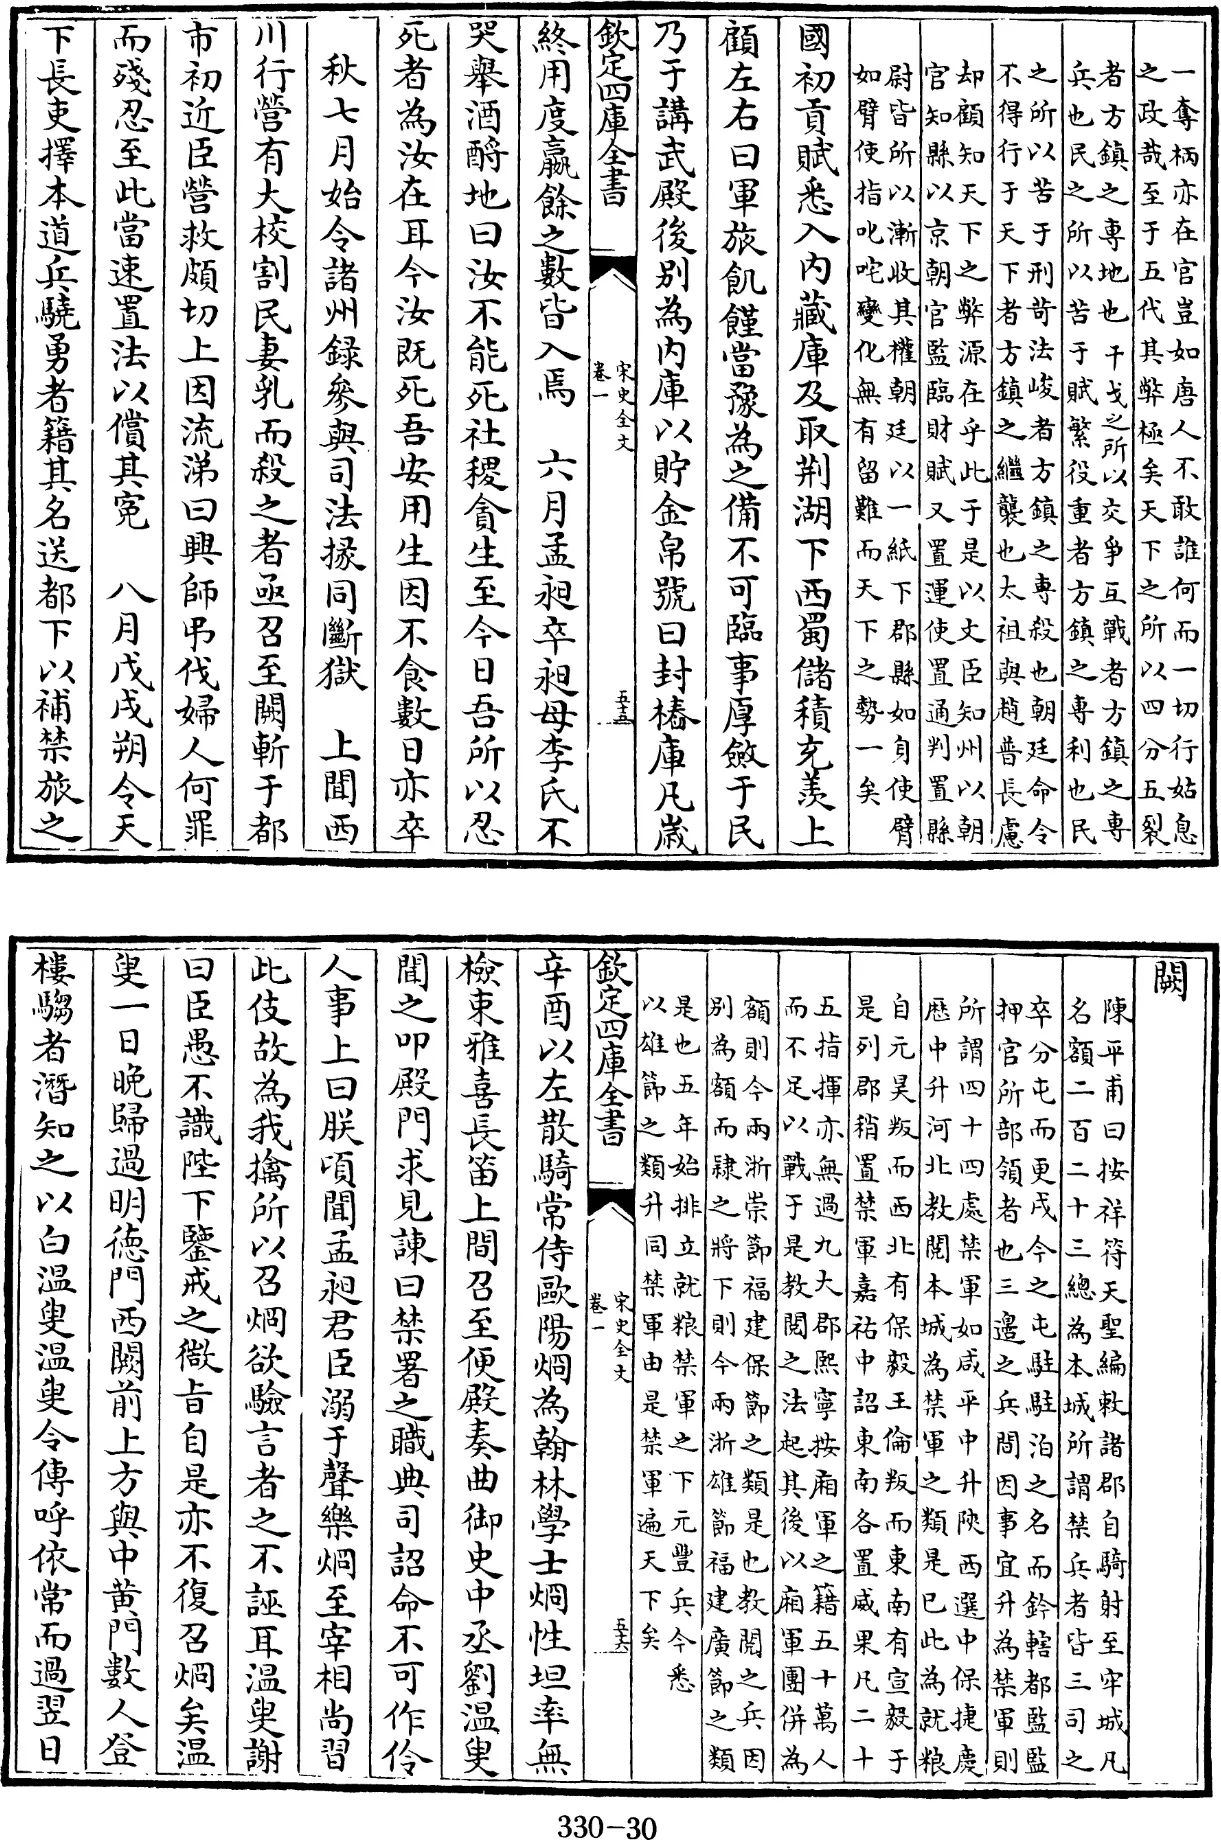 一奪柄亦在官豈如唐人不敢誰何而一切行姑息
之政哉至于五代其弊極矣天下之所以四分五裂
者方鎮之專地也干戈之所以交爭互戰者方鎮之專
兵也民之所以苦于賦繁役重者方鎮之專利也民
之所以苦于刑苛法峻者方鎮之專殺也朝廷命令
不得行于天下者方鎮之繼襲也太祖與趙普長慮
却顧知天下之弊源在乎此于是以文臣知州以朝
官知縣以京朝官監臨財賦又置運使置通判置縣
尉皆所以漸收其權朝廷以一紙下郡縣如身使臂
如臂使指叱咤變化無有留難而天下之勢一矣
國初貢賦悉入内藏庫及取荆湖下西蜀儲積充羨上
顧左右曰軍旅飢饉當豫為之備不可臨事厚斂于民
乃于講武殿後别為内庫以貯金帛號曰封樁庫凡歲
欽定四庫全書
宋史全文
卷一
五十五
終用度贏餘之數皆入焉　六月孟昶卒昶母李氏不
哭舉酒酹地曰汝不能死社稷貪生至今日吾所以忍
死者為汝在耳今汝既死吾安用生因不食數日亦卒
秋七月始令諸州録參與司法掾同斷獄　上聞西
川行營有大校割民妻乳而殺之者亟召至闕斬于都
市初近臣營救頗切上因流涕曰興師弔伐婦人何罪
而殘忍至此當速置法以償其寃　八月戊戌朔令天
下長吏擇本道兵驍勇者籍其名送都下以補禁旅之
闕
陳平甫曰按祥符天聖編敕諸郡自騎射至牢城凡
名額二百二十三總為本城所謂禁兵者皆三司之
卒分屯而更戍今之屯駐駐泊之名而鈐轄都監監
押官所部領者也三邊之兵間因事宜升為禁軍則
所謂四十四處禁軍如咸平中升陜西選中保捷慶
厯中升河北教閱本城為禁軍之類是已此為就粮
自元昊叛而西北有保毅王倫叛而東南有宣毅于
是列郡稍置禁軍嘉祐中詔東南各置威果凡二十
五指揮亦無過九大郡熙寧按廂軍之籍五十萬人
而不足以戰于是教閱之法起其後以廂軍團併為
額則今兩浙崇節福建保節之類是也教閱之兵因
别為額而隸之將下則今兩浙雄節福建廣節之類
是也五年始排立就粮禁軍之下元豐兵令悉
以雄節之類升同禁軍由是禁軍遍天下矣
欽定四庫全書
宋史全文
卷一
五十六
辛酉以左散騎常侍歐陽烱為翰林學士烱性坦率無
檢束雅喜長笛上間召至便殿奏曲御史中丞劉温叟
聞之叩殿門求見諫曰禁署之職典司詔命不可作伶
人事上曰朕頃聞孟昶君臣溺于聲樂烱至宰相尚習
此伎故為我擒所以召烱欲驗言者之不誣耳温叟謝
曰臣愚不識陛下鑒戒之微旨自是亦不復召烱矣温
叟一日晚歸過明德門西闕前上方與中黄門數人登
樓騶者潛知之以白温叟温叟令傳呼依常而過翌日
330-30